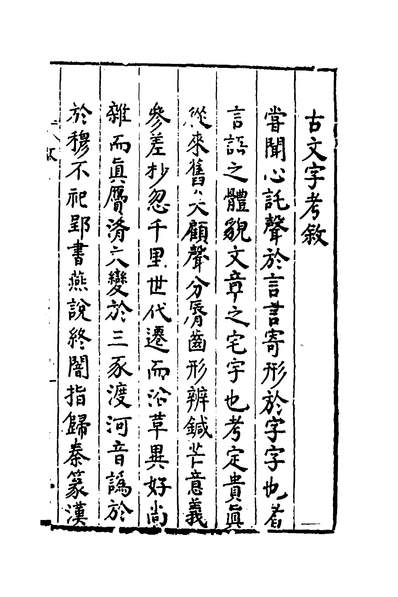 古文字考敘
嘗聞心託聲於言言寄形於字字也者
言語之體貌文章之宅字也考定貴眞
從來舊矣顧聲分脣齒形辨鍼芒意義
參差抄忽千里世代遷而沿革異好尚
雜而眞贗淆文變於三豕渡河音譌於
於穆不祀郢書燕說終闇指歸秦篆漢